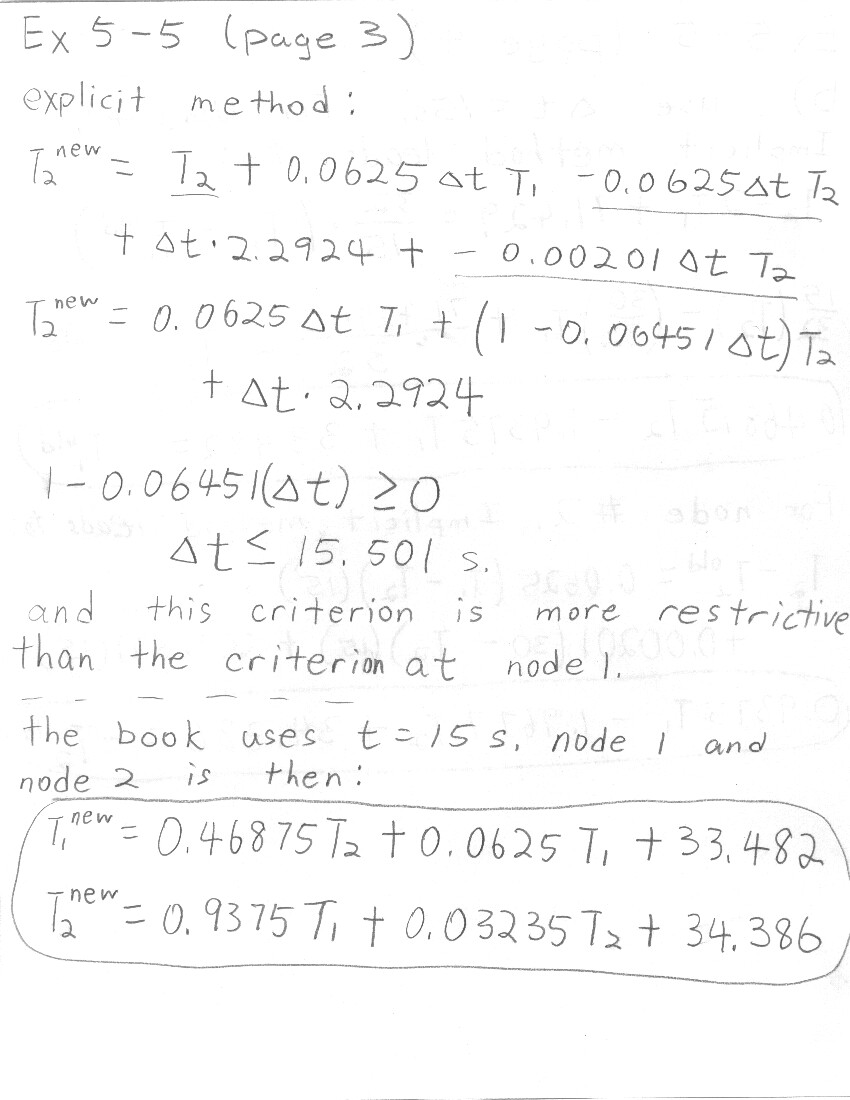 Ex 5-5 (page 3)
explicit method:
T₂ⁿᵉʷ = T₂ + 0.0625 Δt T₁ -0.0625Δt T₂
+ Δt·2.2924 + - 0.00201 Δt T₂
T₂ⁿᵉʷ = 0.0625 Δt T₁ + (1 -0.06451 Δt)T₂
+ Δt· 2.2924
1-0.06451(Δt) ≥0
Δt ≤ 15.501 s.
and this criterion is more restrictive
than the criterion at node 1.
the book uses t = 15 s, node 1 and
node 2 is then:
T₁ⁿᵉʷ = 0.46875T₂ + 0.0625 T₁ + 33.482
T₂ⁿᵉʷ = 0.9375T₁ + 0.03235T₂ + 34.386